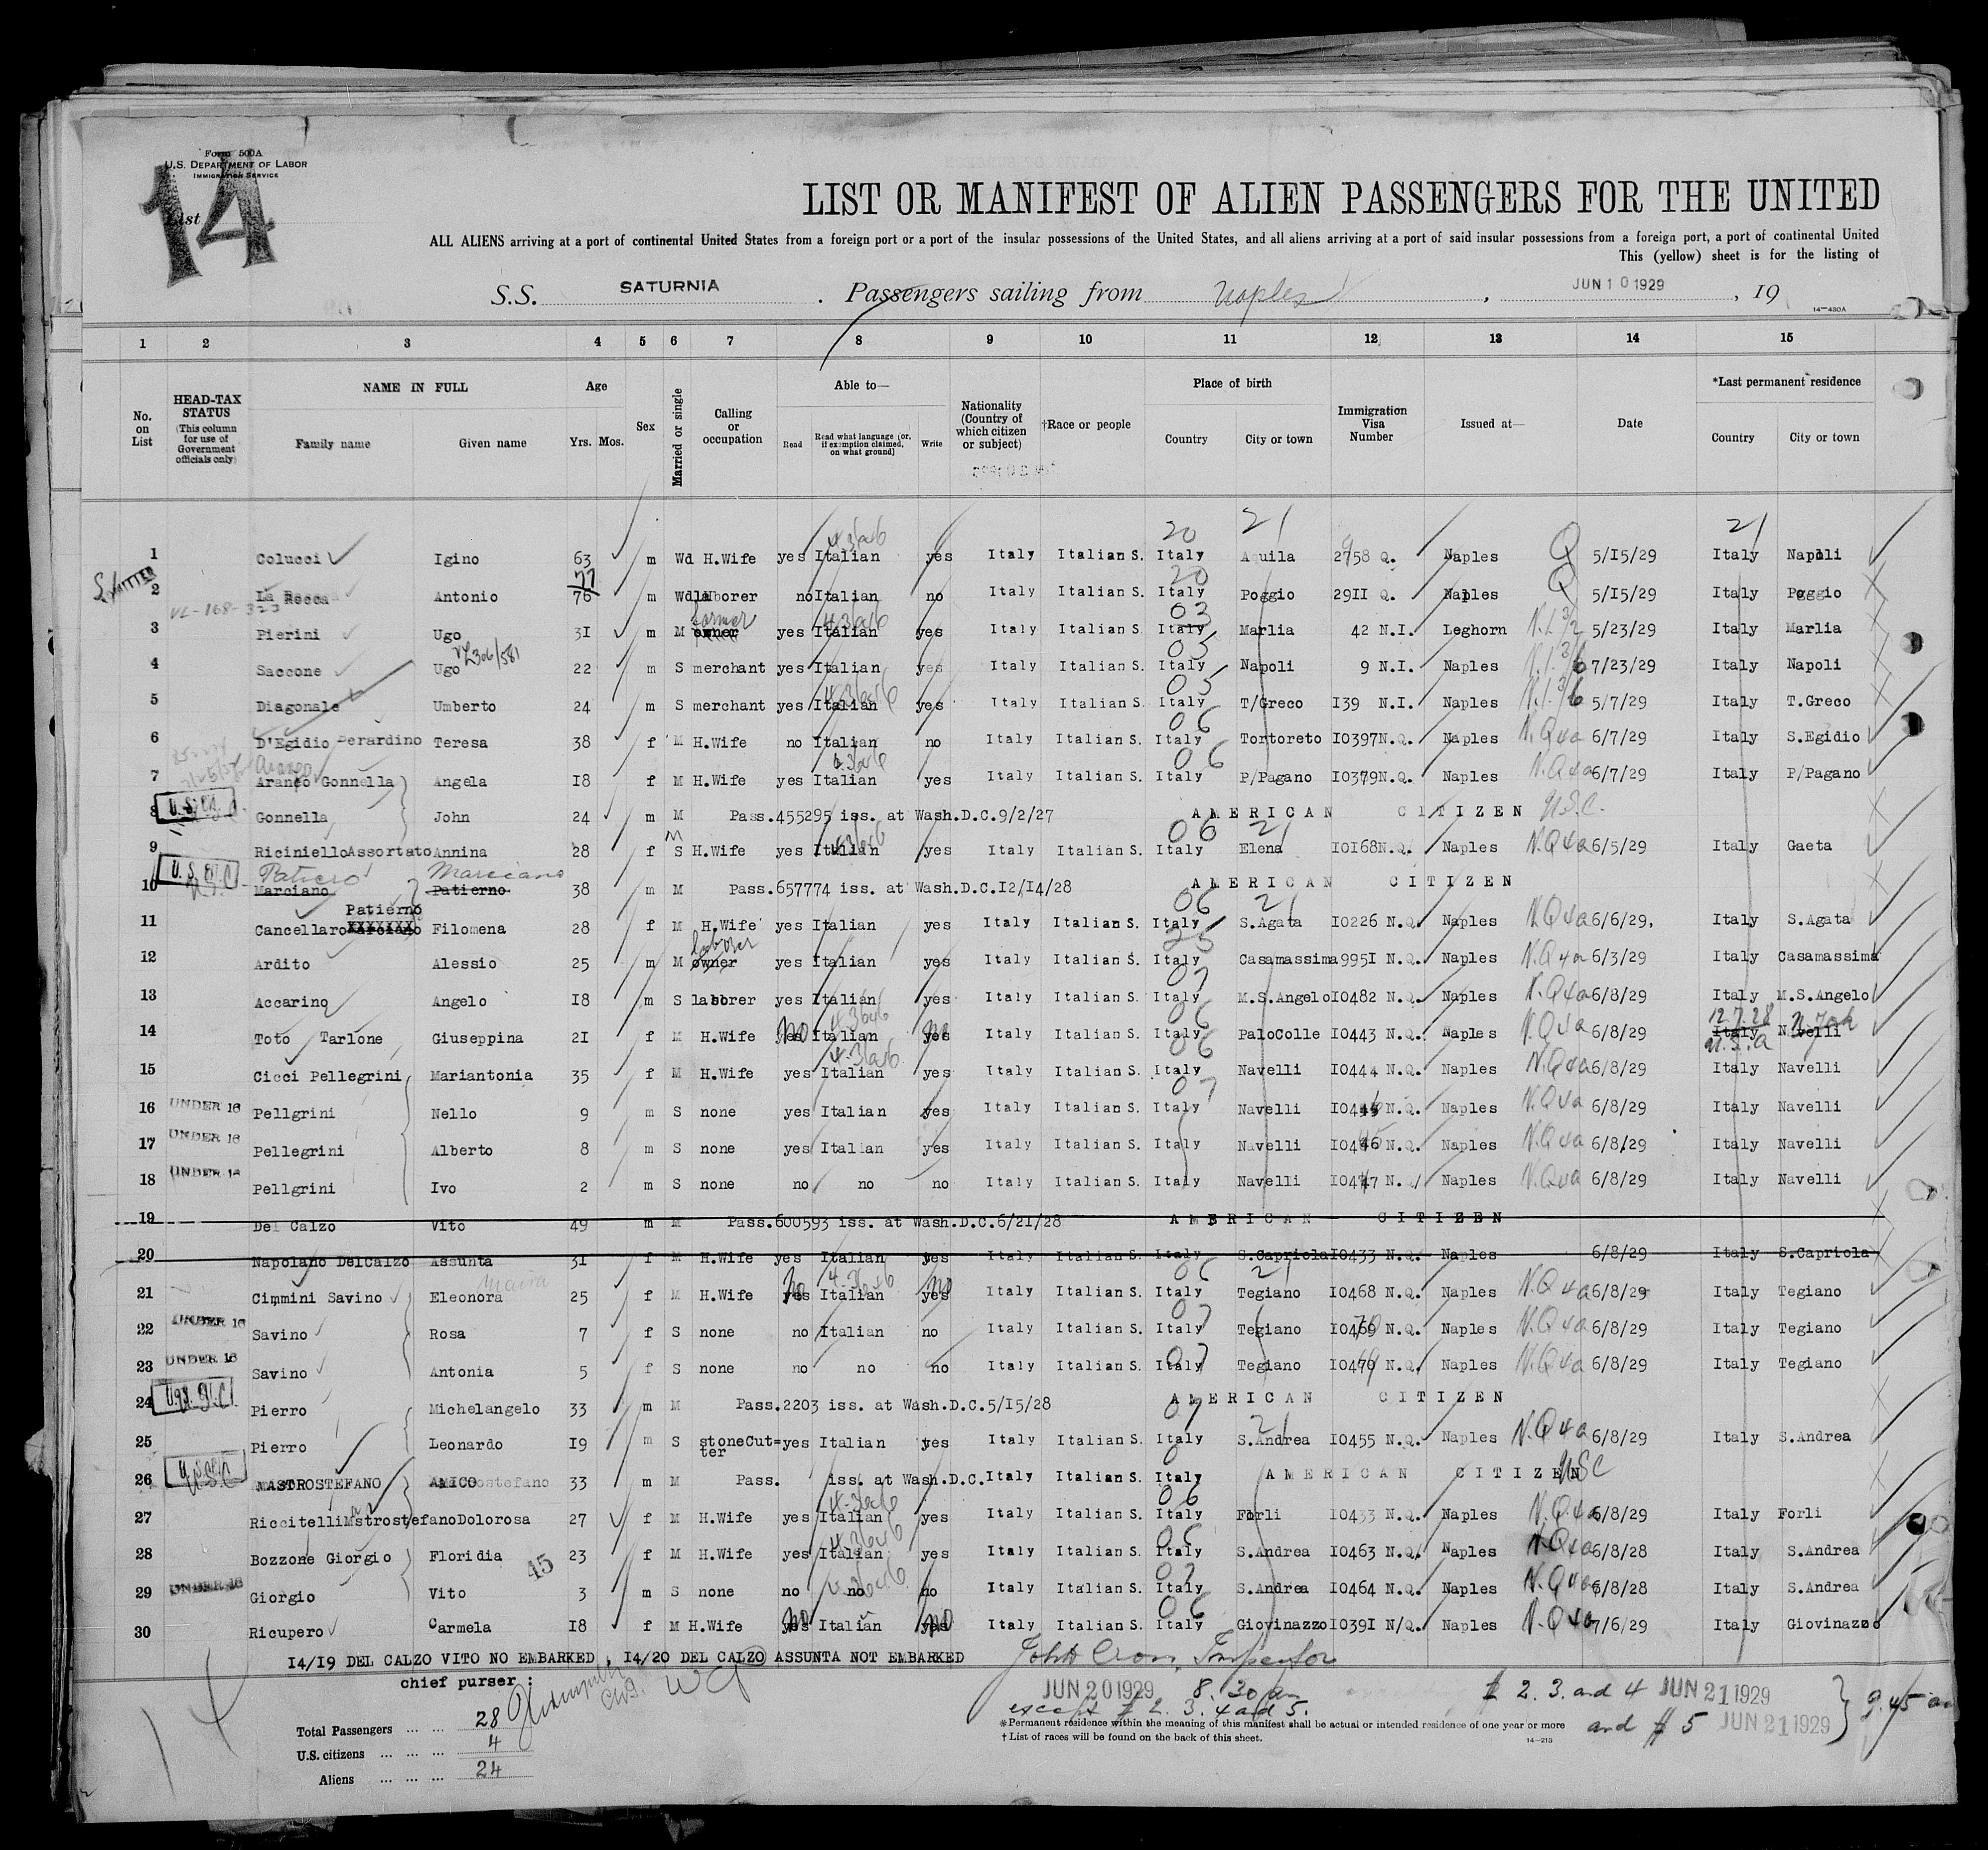 Form 500A
U.S. DEPARTMENT OF LABOR
IMMIGRATION SERVICE
List 14
LIST OR MANIFEST OF ALIEN PASSENGERS FOR THE UNITED
ALL ALIENS arriving at a port of continental United States from a foreign port or a port of the insular possessions of the United States, and all aliens arriving at a port of said insular possessions from a foreign port, a port of continental United
This (yellow) sheet is for the listing of
S.S. SATURNIA . Passengers sailing from Naples , JUN 10 1929 , 19
14—430A
1 2 3 4 5 6 7 8 9 10 11 12 13 14 15
No. on List HEAD-TAX STATUS (This column for use of Government officials only) NAME IN FULL Family name Given name Age Yrs. Mos. Sex Married or single Calling or occupation Able to— Read Read what language [or, if exemption claimed, on what ground] Write Nationality (Country of which citizen or subject) †Race or people Place of birth Country City or town Immigration Visa Number Issued at— Date *Last permanent residence Country City or town
20 21 21
1 Colucci Igino 63 m Wd H.Wife yes Italian yes Italy Italian S. Italy Aquila 2758 Q. Naples Q 5/15/29 Italy Napoli
2 La Rocca Antonio 77 76 m Wd laborer no Italian no Italy Italian S. Italy Poggio 2911 Q. Naples Q 5/15/29 Italy Poggio
3 Pierini Ugo 31 m M owner yes Italian yes Italy Italian S. Italy Marlia 42 N.I. Leghorn 5/23/29 Italy Marlia
4 Saccone Ugo 22 m S merchant yes Italian yes Italy Italian S. Italy Napoli 9 N.I. Naples 7/23/29 Italy Napoli
5 Diagonale Umberto 24 m S merchant yes Italian yes Italy Italian S. Italy T/Greco 139 N.I. Naples 5/7/29 Italy T.Greco
6 D'Egidio Berardino Teresa 38 f M H.Wife no Italian no Italy Italian S. Italy Tortoreto 10397 N.Q. Naples N.Q 4a 6/7/29 Italy S.Egidio
7 Aranco Gonnella Angela 18 f M H.Wife yes Italian yes Italy Italian S. Italy P/Pagano 10379 N.Q. Naples N.Q 4a 6/7/29 Italy P/Pagano
8 U.S.C. Gonnella John 24 m M Pass.455295 iss. at Wash.D.C.9/2/27 AMERICAN CITIZEN U.S.C.
9 Riciniello Assortato Annina 28 f S M H.Wife yes Italian yes Italy Italian S. Italy Elena 10168 N.Q. Naples N.Q 4a 6/5/29 Italy Gaeta
10 U.S.C. Marciano Patierno Marciano 38 m M Pass.657774 iss. at Wash.D.C.12/14/28 AMERICAN CITIZEN
11 Cancellaro Patierno Filomena 28 f M H.Wife yes Italian yes Italy Italian S. Italy S.Agata 10226 N.Q. Naples N.Q 4a 6/6/29. Italy S.Agata
12 Ardito Alessio 25 m M owner laborer yes Italian yes Italy Italian S. Italy Casamassima 9951 N.Q. Naples N.Q 4a 6/3/29 Italy Casamassima
13 Accarino Angelo 18 m S laborer yes Italian yes Italy Italian S. Italy M.S.Angelo 10482 N.Q. Naples N.Q 4a 6/8/29 Italy M.S.Angelo
14 Toto Tarlone Giuseppina 21 f M H.Wife yes no Italian yes no Italy Italian S. Italy PaloColle 10443 N.Q. Naples N.Q 4a 6/8/29 12.7.28 Italy U.S.A Navelli N. York
15 Cicci Pellegrini Mariantonia 35 f M H.Wife yes Italian yes Italy Italian S. Italy Navelli 10444 N.Q. Naples N.Q 4a 6/8/29 Italy Navelli
16 UNDER 16 Pellgrini Nello 9 m S none yes Italian yes Italy Italian S. Italy Navelli N.Q. Naples N.Q 4a 6/8/29 Italy Navelli
17 UNDER 16 Pellegrini Alberto 8 m S none yes Italian yes Italy Italian S. Italy Navelli N.Q. Naples N.Q 4a 6/8/29 Italy Navelli
18 UNDER 16 Pellgrini Ivo 2 m S none no no no Italy Italian S. Italy Navelli 10447 N. Naples N.Q 4a 6/8/29 Italy Navelli
19 Del Calzo Vito 49 m M Pass.600593 iss. at Wash.D.C.6/21/28 AMERICAN CITIZEN
20 Napolano DelCalzo Assunta 31 f M H.Wife yes Italian yes Italy Italian S. Italy S.Capriola 10433 N.Q. Naples 6/8/29 Italy S.Capriola
21 Cimmini Savino Eleonora Maria 25 f M H.Wife yes no Italian yes no Italy Italian S. Italy Tegiano 10468 N.Q. Naples N.Q 4a 6/8/29 Italy Tegiano
22 UNDER 16 Savino Rosa 7 f S none no Italian no Italy Italian S. Italy Tegiano 10469 N.Q. Naples N.Q 4a 6/8/29 Italy Tegiano
23 UNDER 16 Savino Antonia 5 f S none no no no Italy Italian S. Italy Tegiano 10470 N.Q. Naples N.Q 4a 6/8/29 Italy Tegiano
24 Pierro Michelangelo 33 m M Pass.2203 iss. at Wash.D.C.5/15/28 AMERICAN CITIZEN
25 Pierro Leonardo 19 m S stoneCut=ter yes Italian yes Italy Italian S. Italy S.Andrea 10455 N.Q. Naples N.Q 4a 6/8/29 Italy S.Andrea
26 MASTROSTEFANO AMICO 33 m M Pass. iss. at Wash.D.C. Italy Italian S. Italy AMERICAN CITIZEN USC
27 Riccitelli Mastrostefano Dolorosa 27 f M H.Wife yes Italian yes Italy Italian S. Italy Forli 10433 N.Q. Naples N.Q 4a 6/8/29 Italy Forli
28 Bozzone Giorgio Floridia 23 f M H.Wife yes Italian yes Italy Italian S. Italy S.Andrea 10463 N.Q. Naples N.Q 4a 6/8/28 Italy S.Andrea
29 UNDER 16 Giorgio Vito 45 3 m S none no no no Italy Italian S. Italy S.Andrea 10464 N.Q. Naples N.Q 4a 6/8/28 Italy S.Andrea
30 Ricupero Carmela 18 f M H.Wife yes no Italian yes no Italy Italian S. Italy Giovinazzo 10391 N/Q. Naples N.Q 4a 7/6/29 Italy Giovinazzo
14/19 DEL CALZO VITO NO EMBARKED , 14/20 DEL CALZO ASSUNTA NOT EMBARKED
chief purser :
JUN 20 1929 8.30 am
except # 2. 3. 4 and 5.
# 2. 3. and 4 JUN 21 1929
and # 5 JUN 21 1929
9.45 am
Total Passengers ... ... 28
U.S. citizens ... ... ... 4
Aliens ... ... ... 24
*Permanent residence within the meaning of this manifest shall be actual or intended residence of one year or more
† List of races will be found on the back of this sheet.
14—213